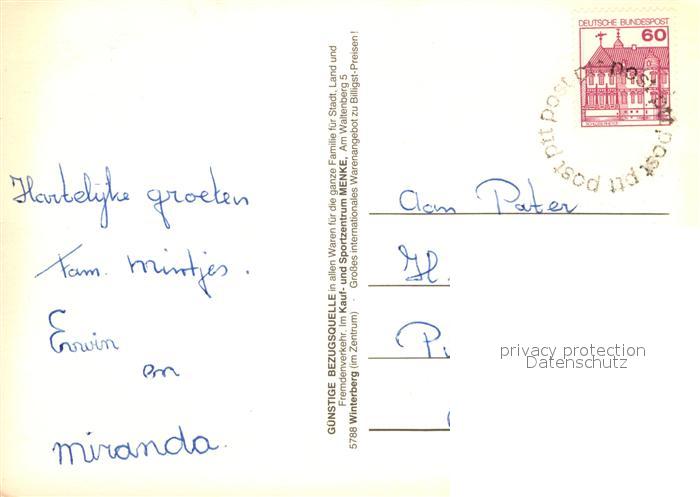 Hartelijke groeten
Fam. Mintjes.
Erwin
en
miranda.
GÜNSTIGE BEZUGSQUELLE in allen Waren für die ganze Familie für Stadt, Land und
Fremdenverkehr. Im Kauf- und Sportzentrum MENKE, Am Waltenberg 5
5788 Winterberg (im Zentrum) · Großes internationales Warenangebot zu Billigst-Preisen!
DEUTSCHE BUNDESPOST
60
post ptt post ptt post ptt post
Aan Pater
H.
P
privacy protection
Datenschutz